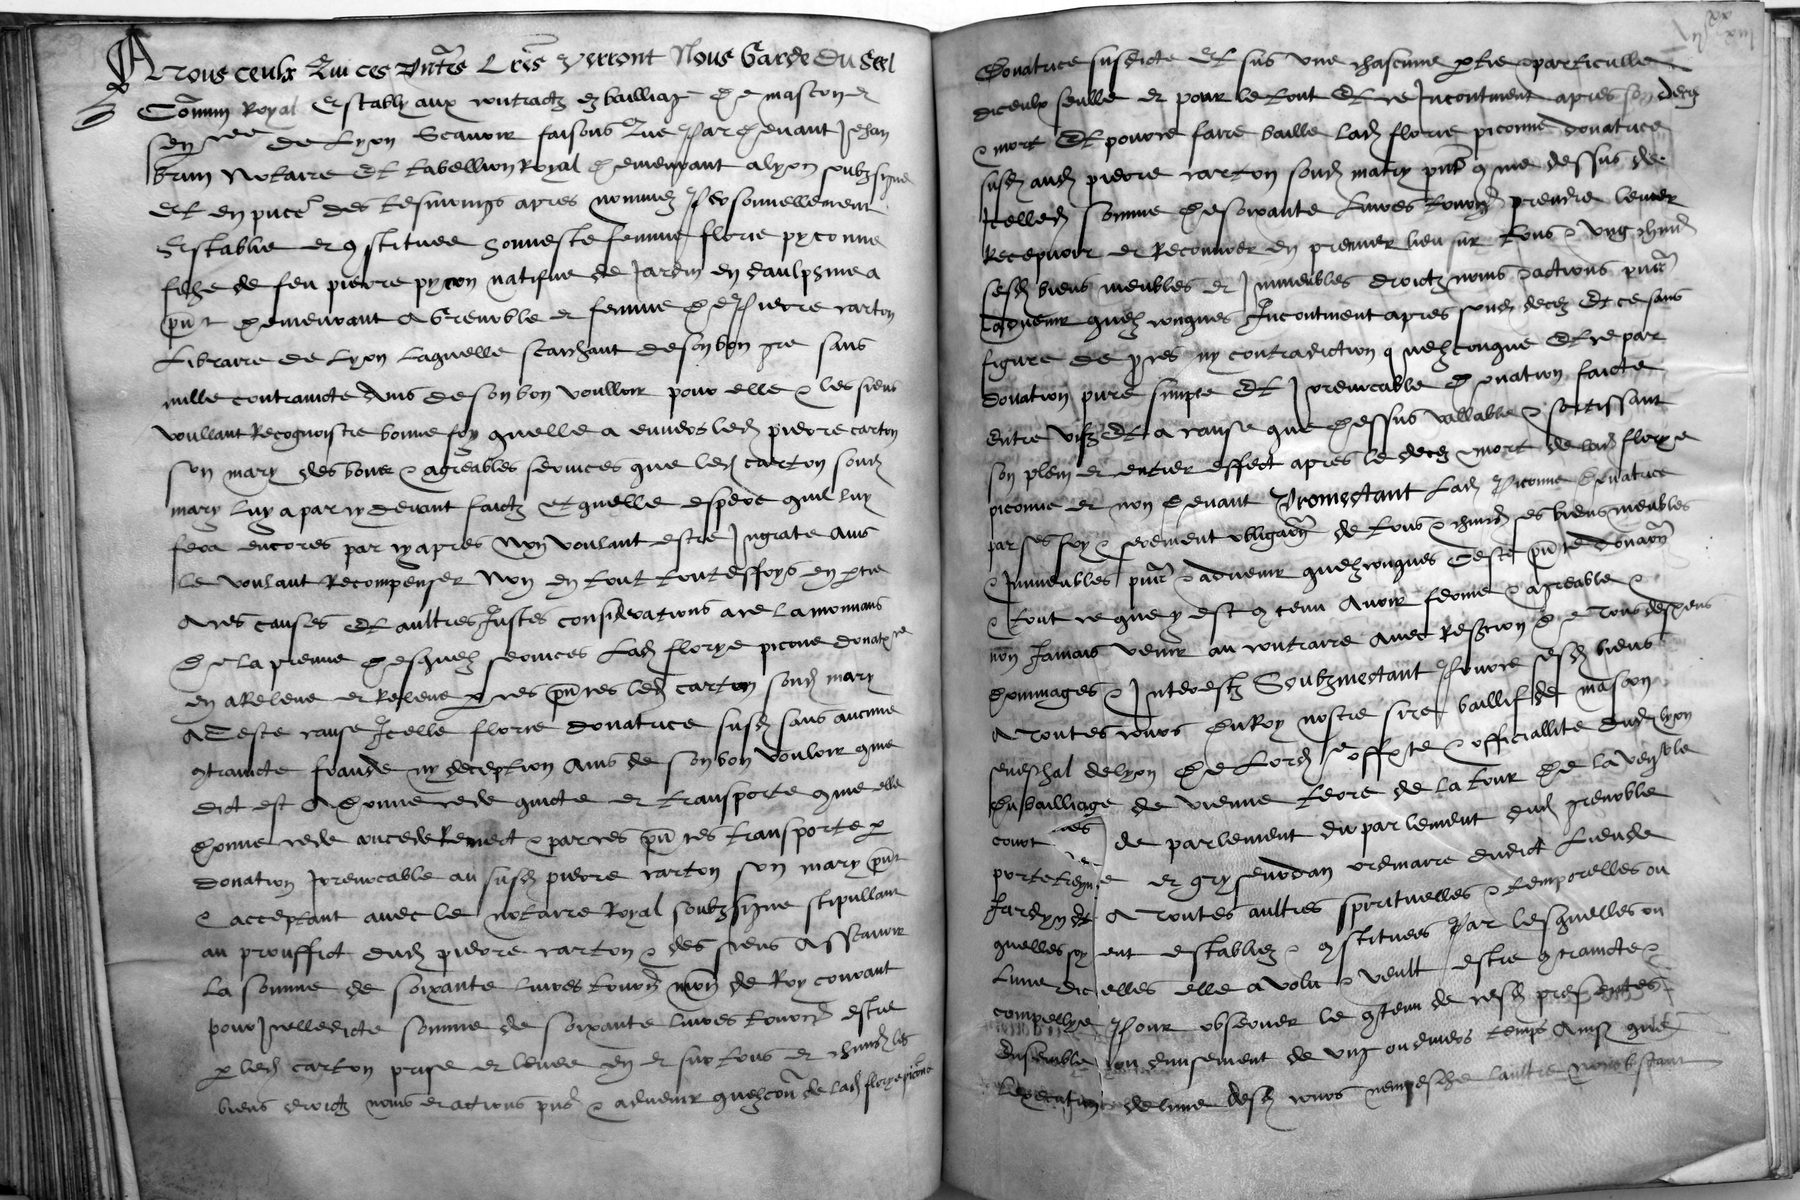 A tous ceulx Qui ces pntes Lres verront Nous Garde du Seel
Comun Royal Estably aux contractz ez bailliage de mascon et
sen cee de Lyon Scavoir faisons Que Par devant Jehan
brun Notaire Et tabellion Royal demeurant a lyon soubzsigne
Et en pnce des tesmoings apres nommez Personnellement
Establie et 9stituee honneste femme florie pyconne
filhe de feu pierre pycon natifve de Jardin en daulphine a
pnt demeurant A Grenoble et femme de Pierre carton
Libraire de Lyon Laquelle scaichant de son bon gre sans
nulle contraincte Ains de son bon voulloir pour elle & les siens
voullant Recognoistre bonne foy quelle a envers led pierre carton
son mary des bons & agreables services que led carton sond
mary luy a par cy devant faictz et quelle espere quil luy
fera encores par cy apres Non voulant estre Ingrate Ains
le voulant Recompenser Non en tout toutesfoys en ptie
A ces causes Et aultres Justes considerations a ce la mouvans
de la preuve desquelz services Lad florye picone donatrice
en a Releve et Releve p ces pntes led carton sond mary
A Ceste cause Icelle florie donatrice susd sans aucune
9traincte fraude ny deception Ains de son bon vouloir 9me
dict est A donne cede quicte et transporte 9me elle
donne cede concede Remect & par ces pntes transporte p
donation Irrevocable au susd pierre carton son mary pnt
& acceptant avec le notaire Royal soubzsigne stipullant
au prouffict dud pierre carton & des siens Assavoir
La somme de soixante livres tourn mon de Roy courant
pour Icelledicte somme de soixante livres tourn estre
p led carton prise et levee en et sur tous et chuns les
biens droictz noms et actions pns & advenir quelzconques de lad florye piconne
donatrice susdicte Et sus une chascune ptie & particulle
diceulx seulle et pour le tout Et ce Incontinent apres son deces
& mort Et pouvoir faire baille Lad florie piconne donatrice
susd aud pierre carton sond mary pnt 9me dessus de
Icelled somme de soixante Livres tourn prendre lever
Recepvoir et Recouvrer en premier lieu sur tous & ung chun
sesd biens meubles et Immeubles droictz noms & actions pns
& advenir quelz conques Incontinent apres sond deces Et ce sans
figure de proces ny contradiction quelzconque Et ce par
donation pure simple Et Irrevocable donation faicte
entre vifz Et a cause que dessus vallable & sortissant
son plein et entier effect apres le deces & mort de lad florye
piconne et non devant Promectant Lad Piconne donatrice
par ses foy & serement obligaon de tous & chuns ses biens meubles
& Immeubles pns & advenir quelzconques Ceste pnte donaon
& tout ce que y est 9tenu Avoir ferme & agreable &
non Jamais venir au contraire Avec Reffection de tous despens
dommages & Interestz Soubzmectant Encore sesd biens
A toutes cours du Roy nostre sire baillif de mascon
seneschal de lyon de Lord & officiallite dud lyon
du bailliage de vienne terre de la tour de la
court de parlement du parlement dud grenoble
portetreyne et grysevodan ordinaire dudict Lieu de
Jardyn Et A toutes aultres spirituelles & temporelles ou
quelles soyent establies & 9stituees Par lesquelles ou
Lune dicelles elle a volu & veult estre 9traincte &
compellye Pour observer le 9tenu de cesd presentes
Ensemble ou divisement de ung ou divers temps Ainsi que
Lexecution de lune desd cours nempesche laultre nonobstant